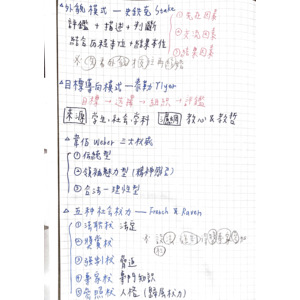 △外貌模式—史鐵克 Stake
評鑑 + 描述 + 判斷
①先在因素
②交流因素
③結果因素
結合 歷程本位 + 結果本位
△目標導向模式—泰勒 Tyler
目標 → 選擇 → 組織 → 評鑑
來源 學生、社會、學科 濾網 教心 & 教哲
△韋伯 Weber 三大權威
①傳統型
②領袖魅力型 (精神感召)
③合法—理性型
△五種社會權力—French & Raven
①法職權 法定
②獎賞權
③強制權 脅迫
④專家權 專門知識
⑤參照權 人格 (歸屬權力)